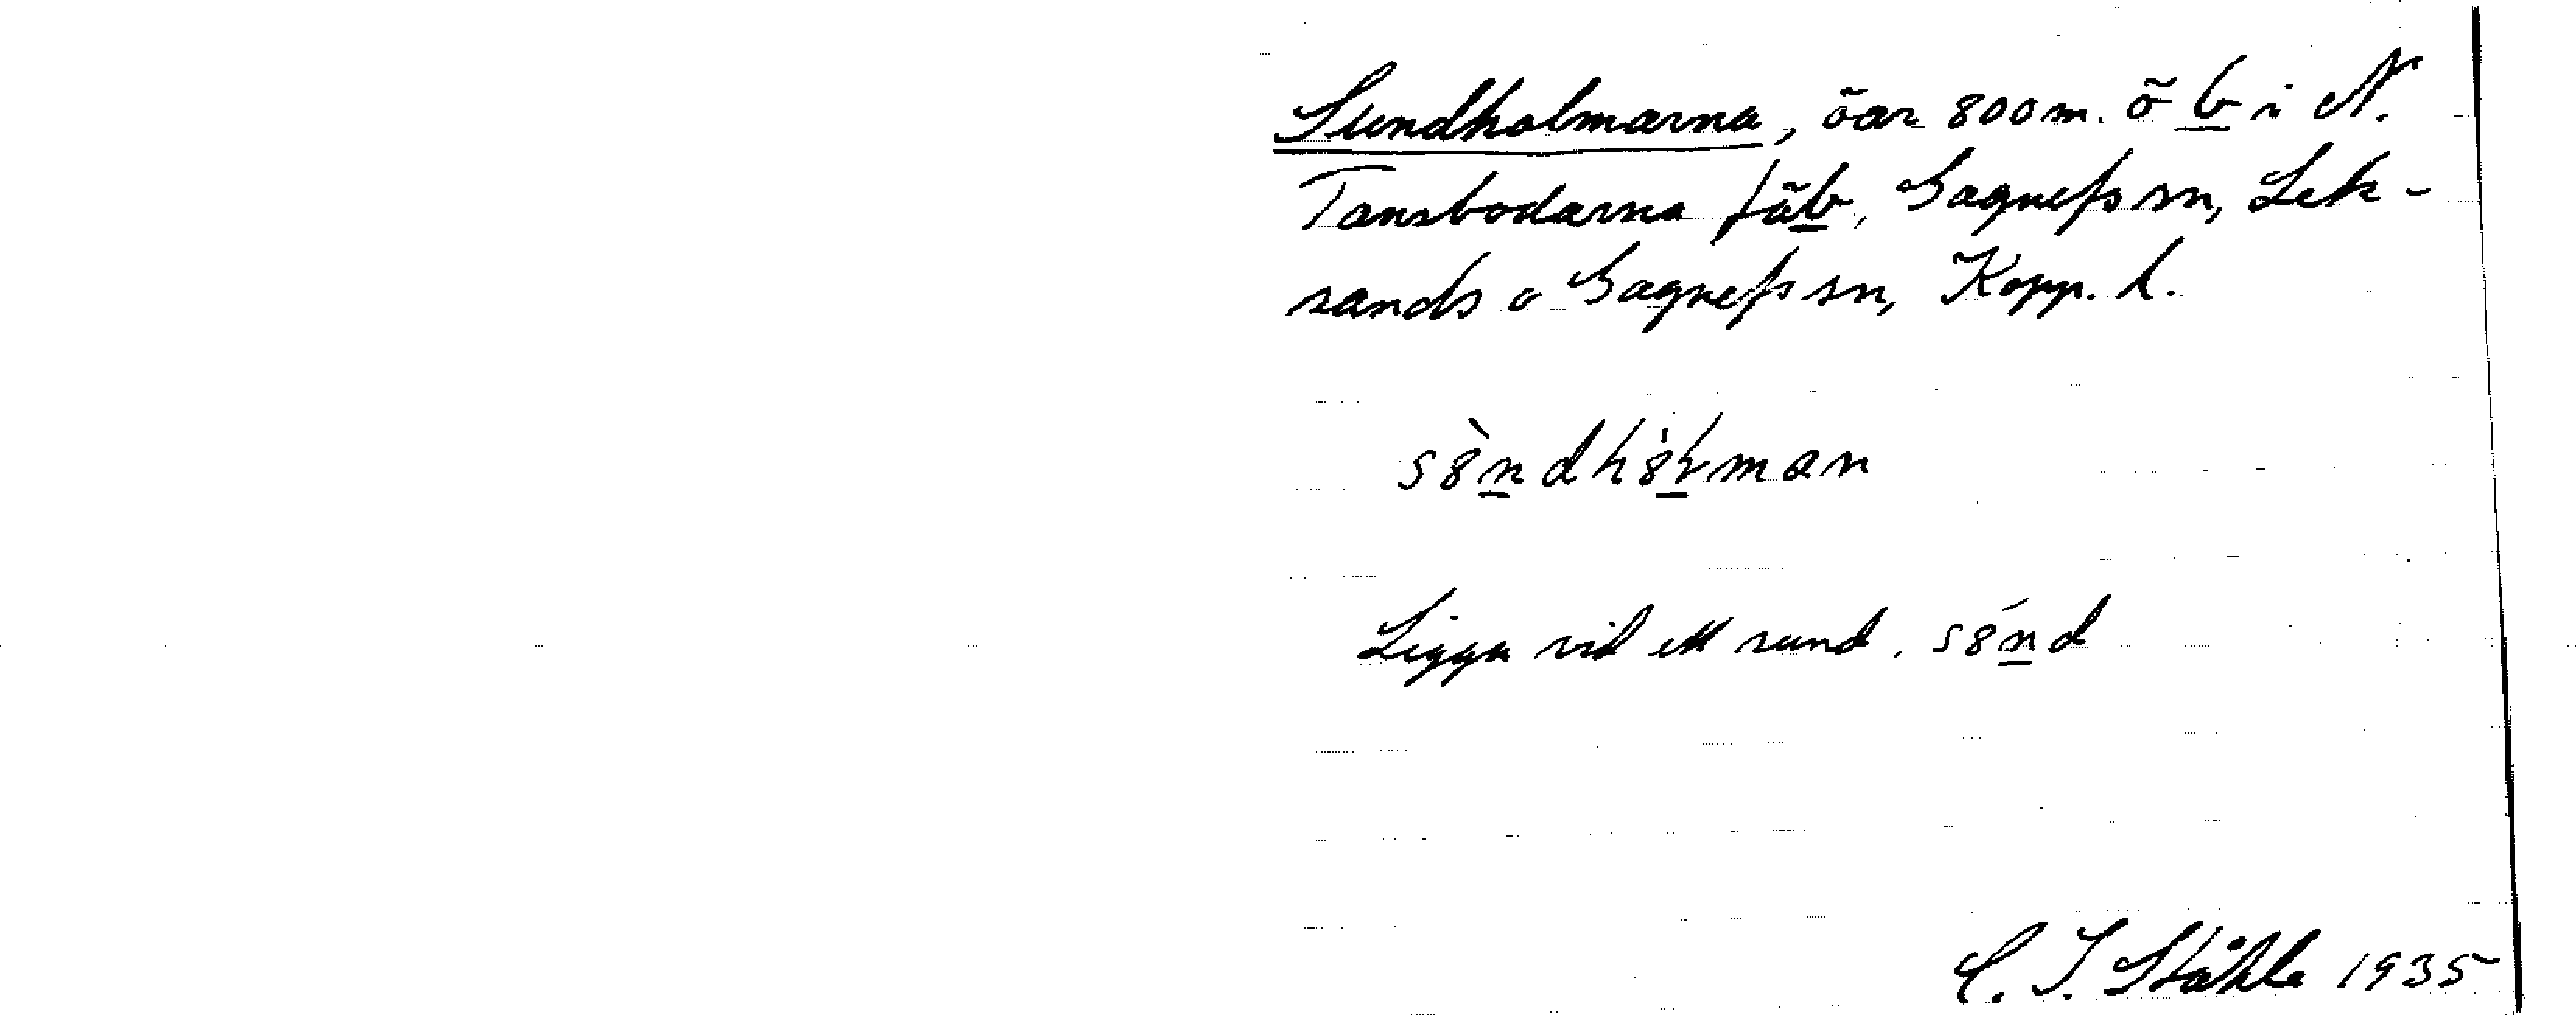 Sundholmarna, öar 800 m. ö b i N.
Tansbodarna fäb, Gagnefs sn, Lek-
sands o Gagnefs sn, Kopp. l.
s8̀ndh8̍ɽman
Ligga vid ett sund. s8́nd
C. I. Ståhle 1935